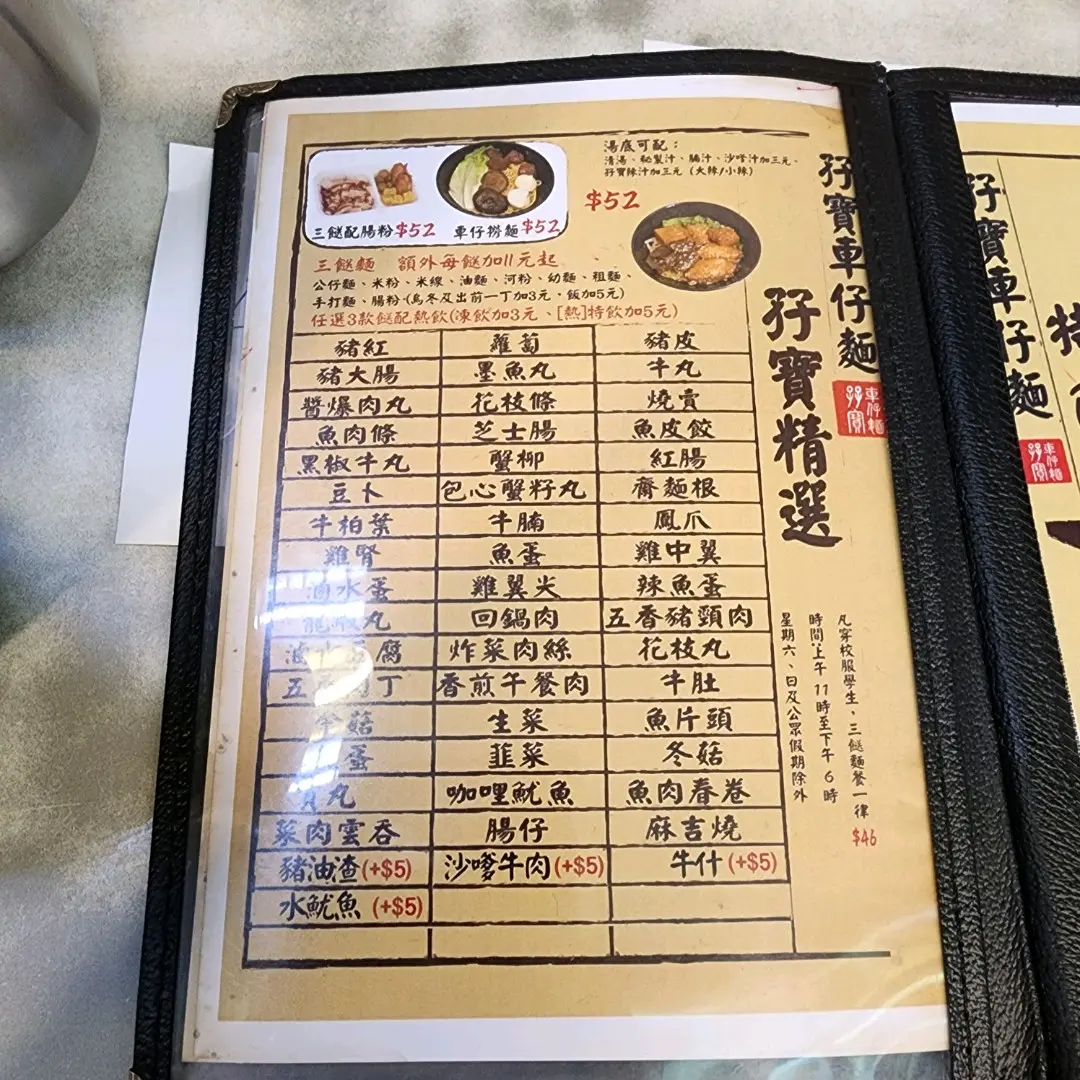 湯底可配：
清湯、秘製汁、腩汁、沙嗲汁加三元、
孖寶辣汁加三元（大辣/小辣）
$52
三餸配腸粉$52 車仔撈麵$52
三餸麵 額外每餸加11元起
公仔麵、米粉、米線、油麵、河粉、幼麵、粗麵、
手打麵、腸粉（烏冬及出前一丁加3元，飯加5元）
任選3款餸配熱飲(凍飲加3元、[熱]特飲加5元)
豬紅 蘿蔔 豬皮
豬大腸 墨魚丸 牛丸
醬爆肉丸 花枝條 燒賣
魚肉條 芝士腸 魚皮餃
黑椒牛丸 蟹柳 紅腸
豆卜 包心蟹籽丸 齋麵根
牛柏葉 牛腩 鳳爪
雞腎 魚蛋 雞中翼
滷水蛋 雞翼尖 辣魚蛋
龍蝦丸 回鍋肉 五香豬頸肉
滷水豆腐 炸菜肉絲 花枝丸
五 丁 香煎午餐肉 牛肚
菇 生菜 魚片頭
蛋 韮菜 冬菇
丸 咖哩魷魚 魚肉春卷
菜肉雲吞 腸仔 麻吉燒
豬油渣(+$5) 沙嗲牛肉(+$5) 牛什(+$5)
水魷魚 (+$5)
孖寶車仔麵
孖寶
車仔麵
孖寶精選
凡穿校服學生，三餸麵餐一律
$46
時間：上午 11時至下午 6時
星期六、日及公眾假期除外
孖寶車仔麵
孖寶
車仔麵